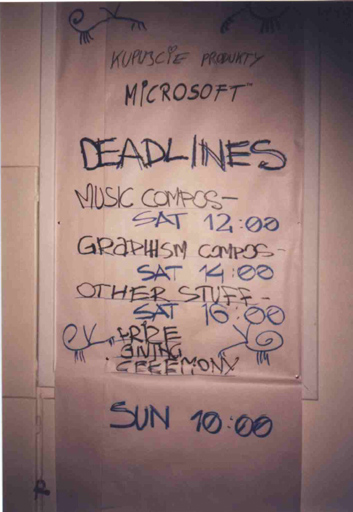 KUPUJCIE PRODUKTY
MICROSOFT™
DEADLINES
MUSIC COMPOS-
SAT 12:00
GRAPHISM COMPOS-
SAT 14:00
OTHER STUFF-
SAT 16:00
PRIZE
CEREMONY
SUN 10:00